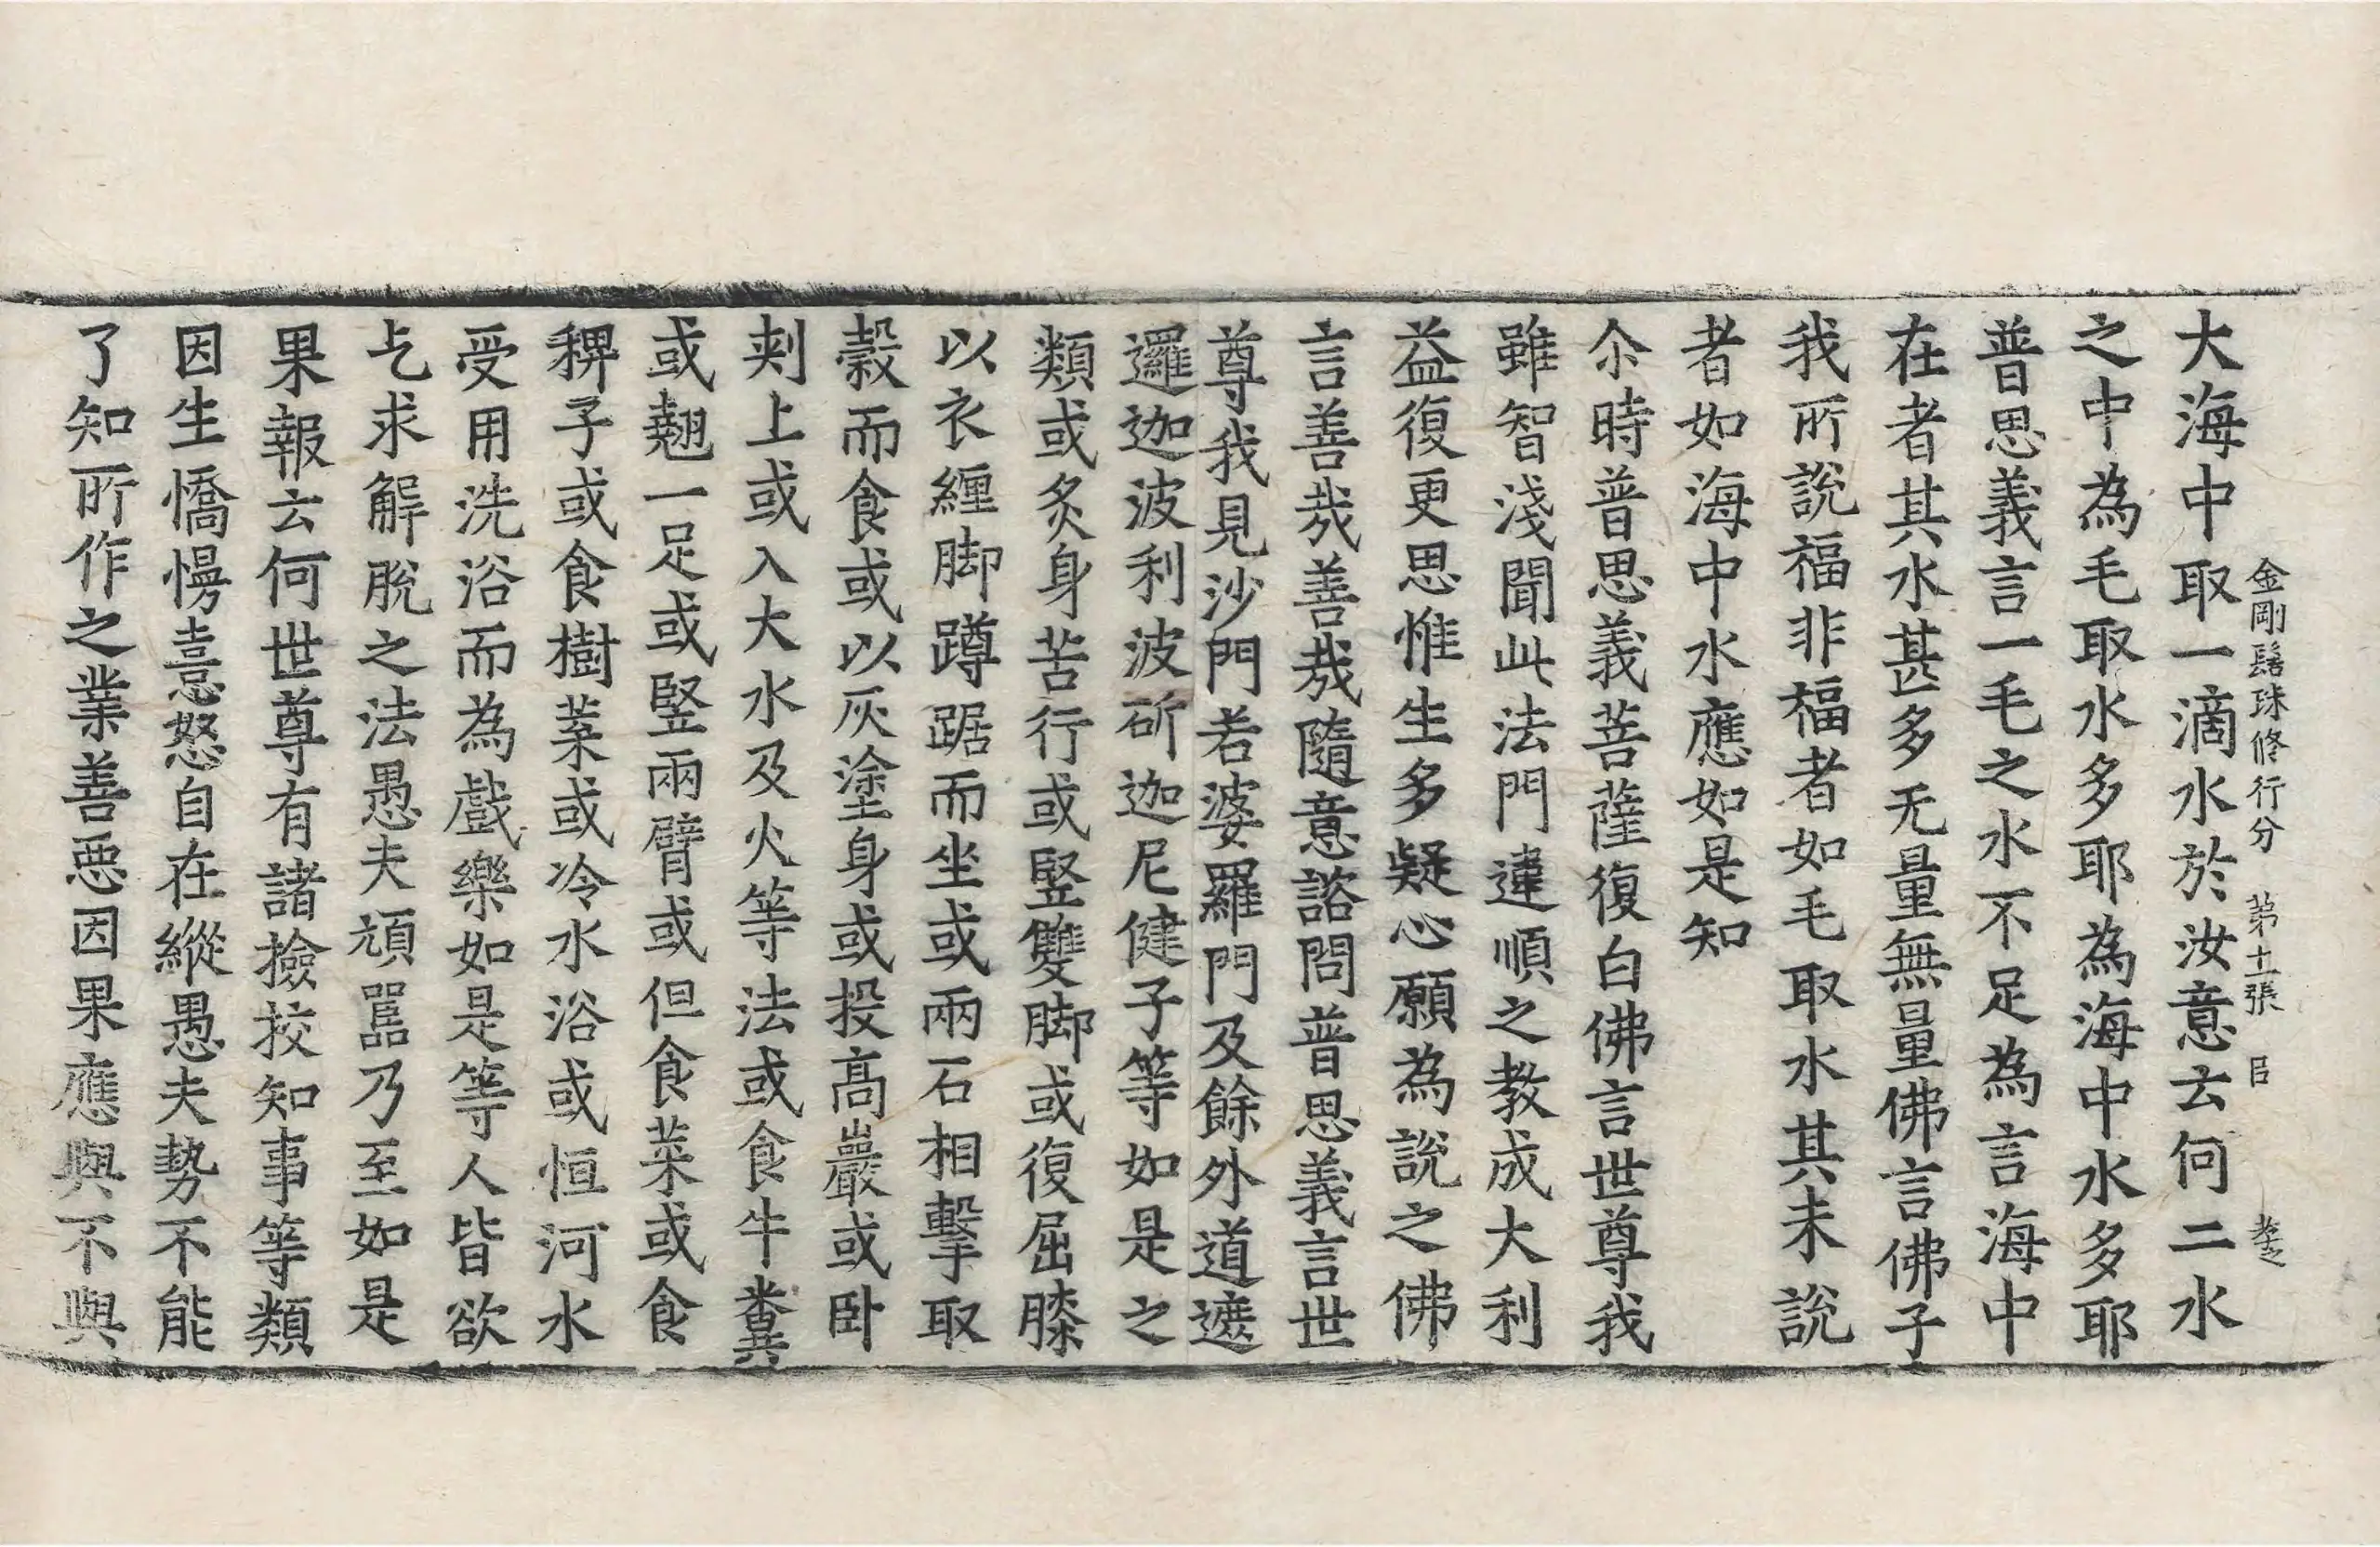 大海中取一滴水於汝意云何二水
金剛髻珠修行分　第十一張　㠯
之中為毛取水多耶為海中水多耶
普思義言一毛之水不足為言海中
在者其水甚多无量無量佛言佛子
我所說福非福者如毛取水其未說
者如海中水應如是知
尒時普思義菩薩復白佛言世尊我
雖智淺聞此法門違順之教成大利
益復更思惟生多疑心願為說之佛
言善哉善哉隨意諮問普思義言世
尊我見沙門若婆羅門及餘外道遮
邏迦波利波斫迦尼健子等如是之
類或炙身苦行或竪雙脚或復屈膝
以衣纏脚蹲踞而坐或兩石相擊取
糓而食或以灰塗身或投髙巖或卧
刾上或入大水及火等法或食牛糞
或翹一足或竪兩臂或但食菜或食
稗子或食樹葉或冷水浴或恒河水
受用洗浴而為戲樂如是等人皆欲
乞求解脫之法愚夫頑嚚乃至如是
果報云何世尊有諸撿挍知事等類
因生憍慢憙怒自在縱愚夫勢不能
了知所作之業善惡因果應與不與